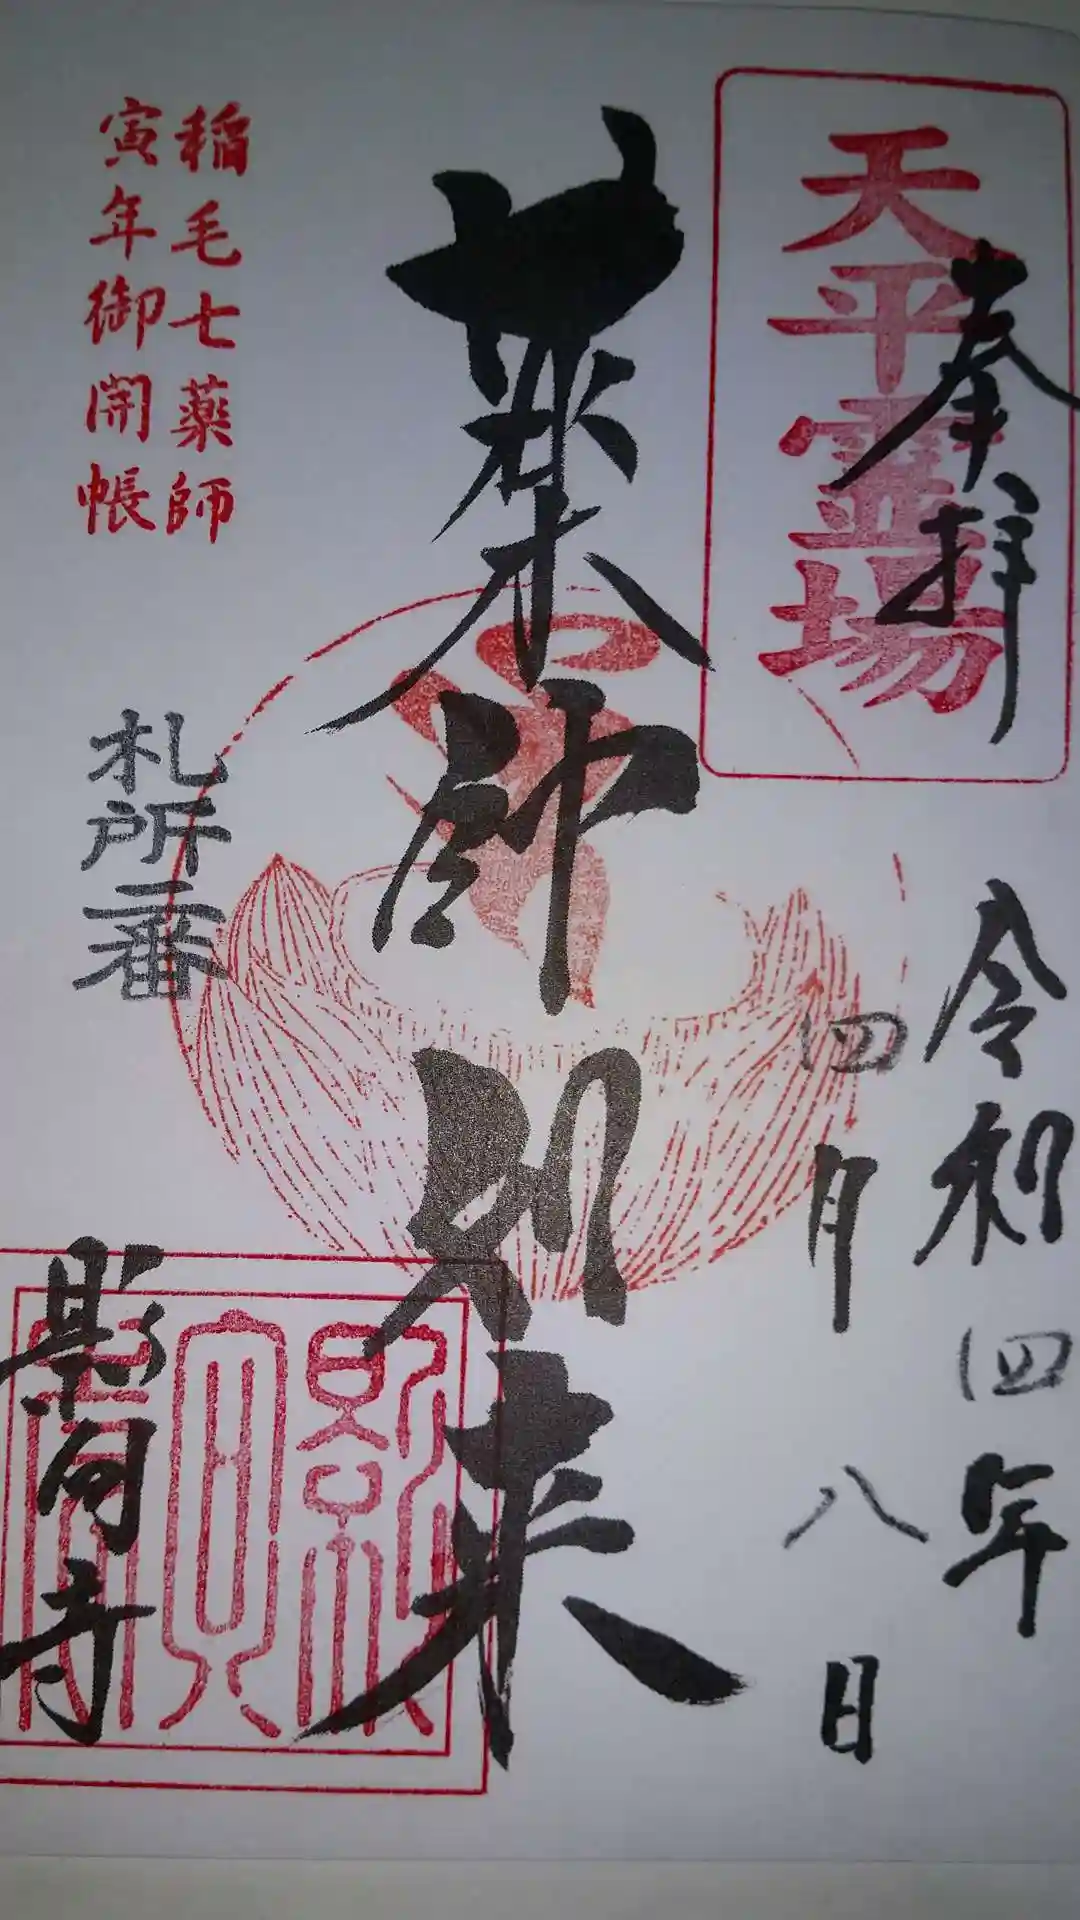 天平霊場
奉拝
令和四年
四月八日
薬師如来
稲毛七薬師
寅年御開帳
札所一番
影向寺